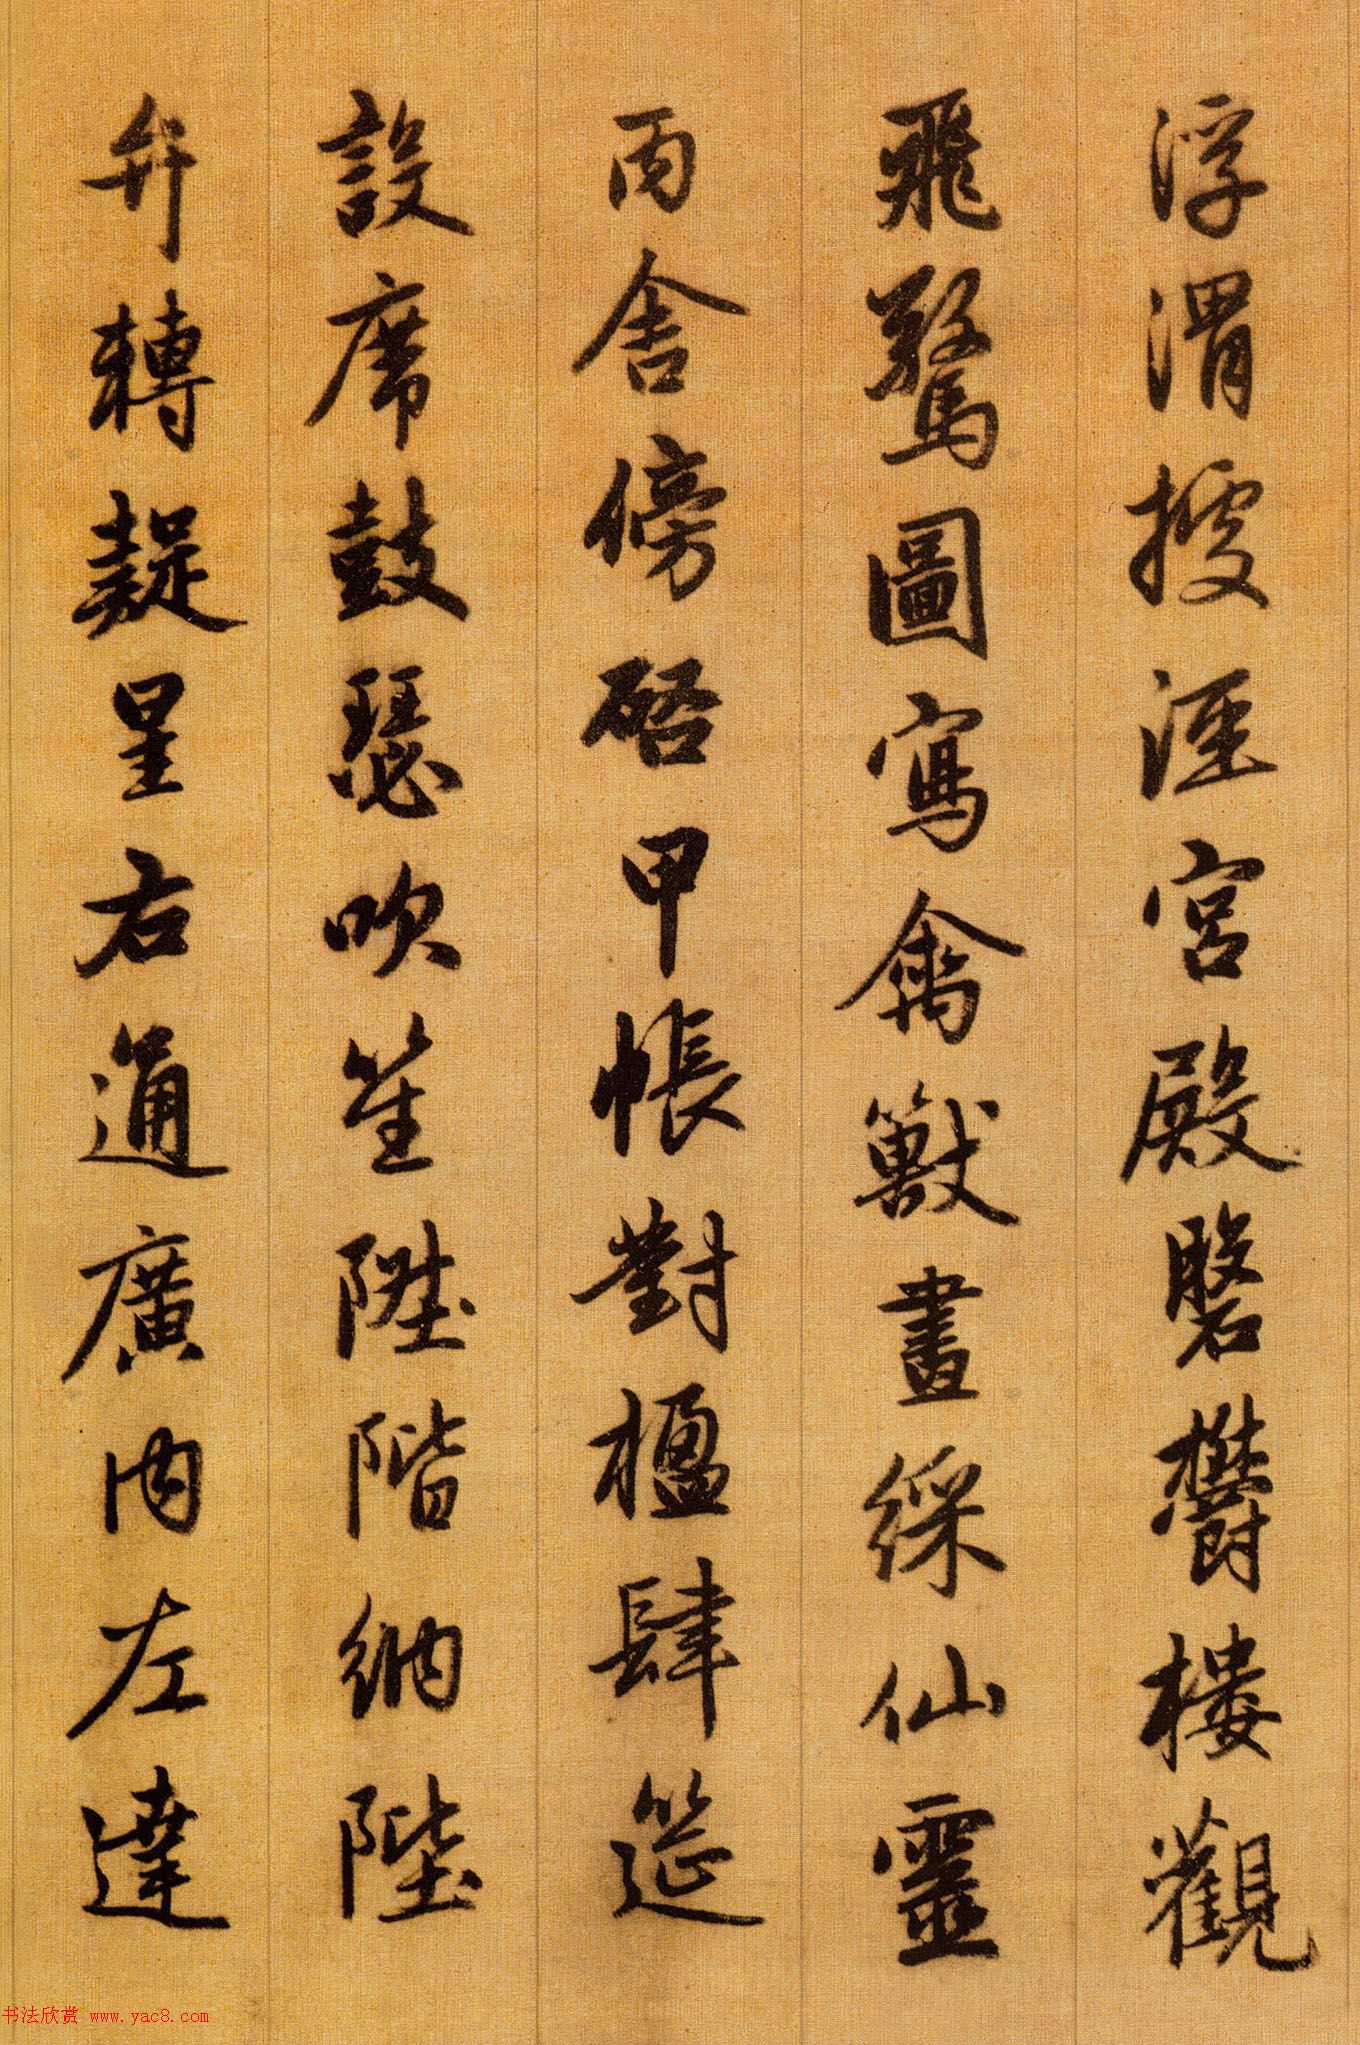 浮渭據涇宮殿磐鬱樓觀
飛驚圖寫禽獸畫綵仙靈
丙舍傍啓甲帳對楹肆筵
設席鼓瑟吹笙陞階納陛
弁轉疑星右通廣內左達
书法欣赏 www.yac8.com